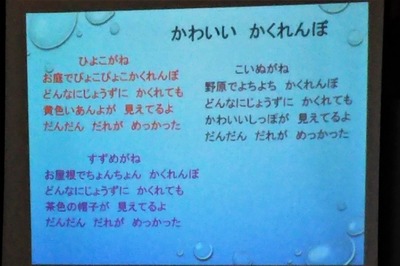 かわいい　かくれんぼ
ひよこがね
お庭でぴょこぴょこかくれんぼ
どんなにじょうずに　かくれても
黄色いあんよが　見えてるよ
だんだん　だれが　めっかった
すずめがね
お屋根でちょんちょん　かくれんぼ
どんなにじょうずに　かくれても
茶色の帽子が　見えてるよ
だんだん　だれが　めっかった
こいぬがね
野原でよちよち　かくれんぼ
どんなにじょうずに　かくれても
かわいいしっぽが　見えてるよ
だんだん　だれが　めっかった